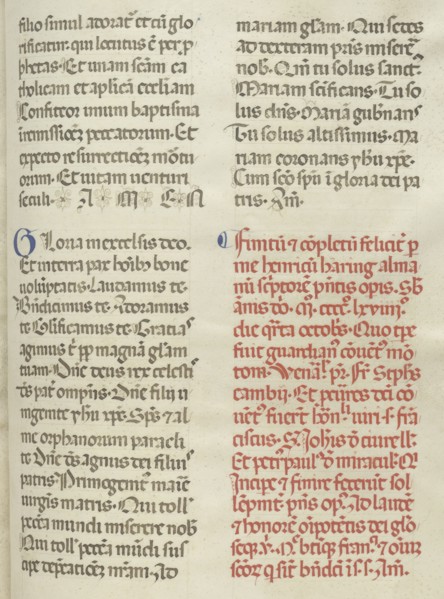 filio simul adorat' et cū glo
rificatur. qui locutus ē per p̱
phetas. Et unam scām ca
tholicam et aplicā eccliam
Confiteor unum baptisma
in remissiōe; peccatorum. Et
expecto resurrectiōe; mōrtu
orum. Et vitam venturi
seculi. A M E N
Gloria in excelsis deo.
Et in terra pax hoīby bone
voluptatis. Laudamus te.
Bn̄dicimus te. Adoramus
te. Glificamus te. Gratias
agimus t' p̱p magnā glam
tuam. Dn̄e deus rex celestis
pat' omp̄ns. Dn̄e fili uni
ingenite yhu xpē. Sps̄ et al
me orphanorum paracli
te. Dn̄e ds̄ agnus dei filius
patris. Primogenit' marie
virgis matris. Qui toll'
pecca mundi miserere nob'
Qui toll' pecca mūdi sus
cipe dep̄catiōe; nr̄am. Ad
mariam glam. Qui sedes
ad dexteram pris miserē
nob'. Qm̄ tu solus sanct'.
Mariam scificans. Tu so
lus dn̄s. Mariā gub'nans
Tu solus altissimus. Ma
riam coronans yhu xpē.
Cum scō spū in gloria dei pa
tris. Am̄.
Finitū et cōpletū feliciter p̱
me henricū haring alma
nū sc̄ptorē p̄ntis opis. Sb
annis do. M. cccc. lxviiij.
die q̄rta octob's. Quo tpe
fuit guardian' cōuēt' mō
tom. Venāl' pr. Fr Steph's
cambij. Et
uēt' fuerūt viri. s. frā
ciscus. S. Johis d' civrell'.
Et petr' paul' d' miracul'. Q'
incipe et finire fecerūt sol
lēpnit' p̄ns op'. Ad laudē
et honorē oīpotētis dei glo
 btiq; franc' et oīuz
scōr q sit bn̄dcā i s. s. Am̄.